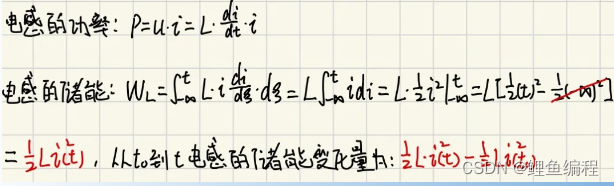 电感的功率: P=u·i=L·di/dt·i
电感的储能: W_L=∫_{-∞}^{t} L·i di/dξ·dξ=L∫_{-∞}^{t} idi=L·½i²|_{-∞}^{t}=L[½i²(t)-½i²(-∞)]
=½Li²(t), 从t₀到t电感的储能变化量为:½L·i²(t)-½Li²(t₀)
CSDN @鲤鱼编程